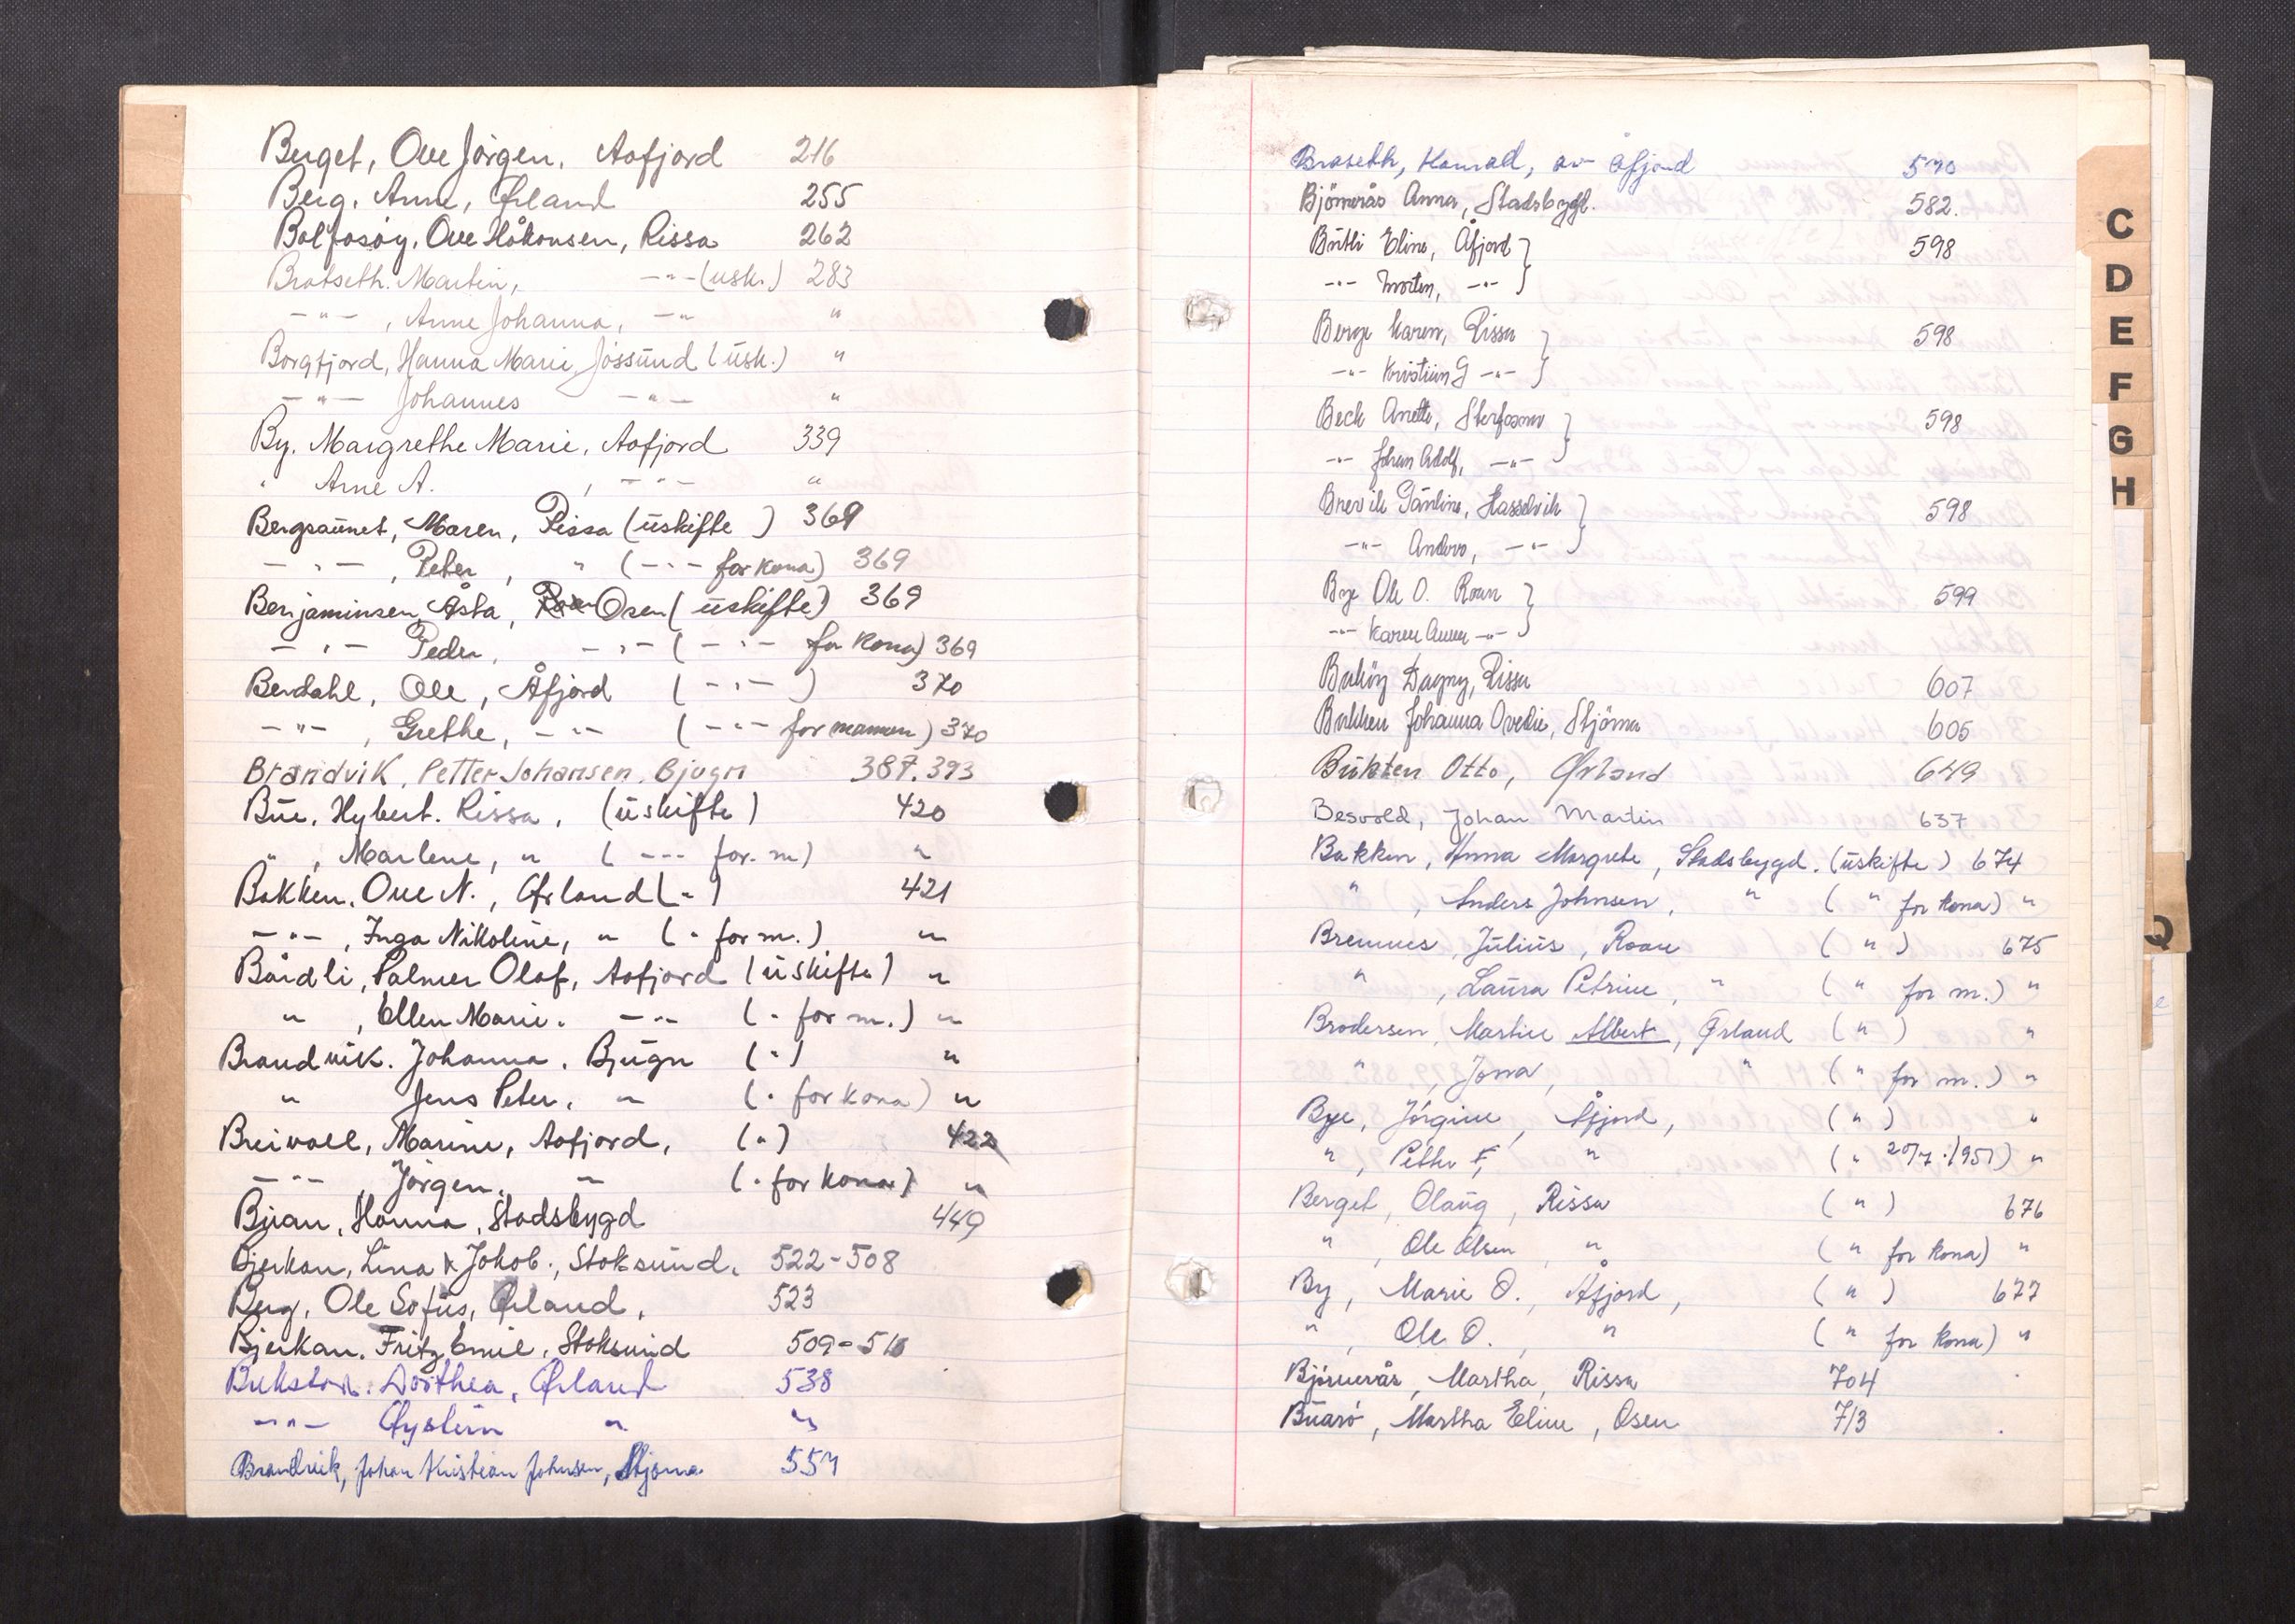 Berget, Ove Jörgen, Aafjord 216
Berg, Anna, Ørland 255
Balfosöy, Ove Håkonsen, Rissa 262
Bratseth. Martin, -"- (usk.) 283
-"- , Anne Johanna, -"- "
Borgfjord, Hanna Marie, Jössund (usk.) "
-"- Johannes -"- "
By. Margrethe Marie, Aafjord 339
" Arne A. , -"- "
Bergsaunet, Maren, Rissa (uskifte ) 369
-"- , Peter , " (-"- for kona) 369
Benjaminsen, Åsta, Osen (uskifte) 369
-"- Peder, -"- ( -"- for kona) 369
Berdahl, Ole, Åfjord ( -"- ) 370
-"- , Grethe, -"- ( -"- for mannen) 370
Brandvik, Petter Johansen, Bjugn 387.393
Bue, Hybert. Rissa, (uskifte) 420
" , Marlene, " ( -"- for. m) "
Bakken, Ove N., Ørland ( " ) 421
-"- , Inga Nikoline, " ( " for m.) "
Bårdli, Palmer Olaf, Aafjord (uskifte) "
" , Ellen Marie. -"- ( " for m.) "
Brandvik. Johanna. Bjugn ( " ) "
" Jens Peter, " ( " for kona) "
Breivoll, Marine, Aafjord, ( " ) 422
-"- Jörgen, " ( " for kona) "
Bjran, Hanna, Stadsbygd 449
Bjerkan, Lina & Jakob., Stoksund. 522-508
Berg, Ole Sofus, Ørland, 523
Bjerkan. Fritz Emil, Stoksund 509-
Dorthea, Ørland 538
-"- Øystein " "
Brandvik, Johan Kristian Johnsen, Stjörna
Braseth, Konrad, av Åfjord 570
Björnerås Anna, Stadsbygd. 582.
Butli Eline, Åfjord } 598
-"- Morten, -"- }
Berge Karen, Rissa } 598
-"- Kristian G -"- }
Beck Anette, } 598
-"- Johan Adolf, -"- }
Brevik Pauline, Hasselvik } 598
-"- , -"- }
Bye Ole O. Roan } 599
-"- Karen Anna -"- }
Dagny, Rissa 607
Bakken Johanna Ovedie, Stjörna 605
Bukten Otto, Ørland 649
Besvold, Johan Martin 637
Bakken, Anna Margrete, Stadsbygd. (uskifte) 674
" , Anders Johnsen, " ( " for kona) "
Bremnes, Julius, Roan ( " ) 675
" , Laura Petrine, " ( " for m.) "
Brodersen, Martin Albert, Ørland ( " ) "
" , Jona, " ( " for m.) "
Bye, Jörgine, Åfjord, ( " ) "
" , Petter F, " ( " 20/7.1951) "
Berget, Olaug, Rissa ( " ) 676
" , Ole Olsen, " ( " for kona) "
By, Marie O., Åfjord, ( " ) 677
" , Ole O. , " ( " for kona) "
Björnerås, Martha, Rissa 704
Buarö, Martha Eline, Osen 713
C
D
E
F
G
H
Q